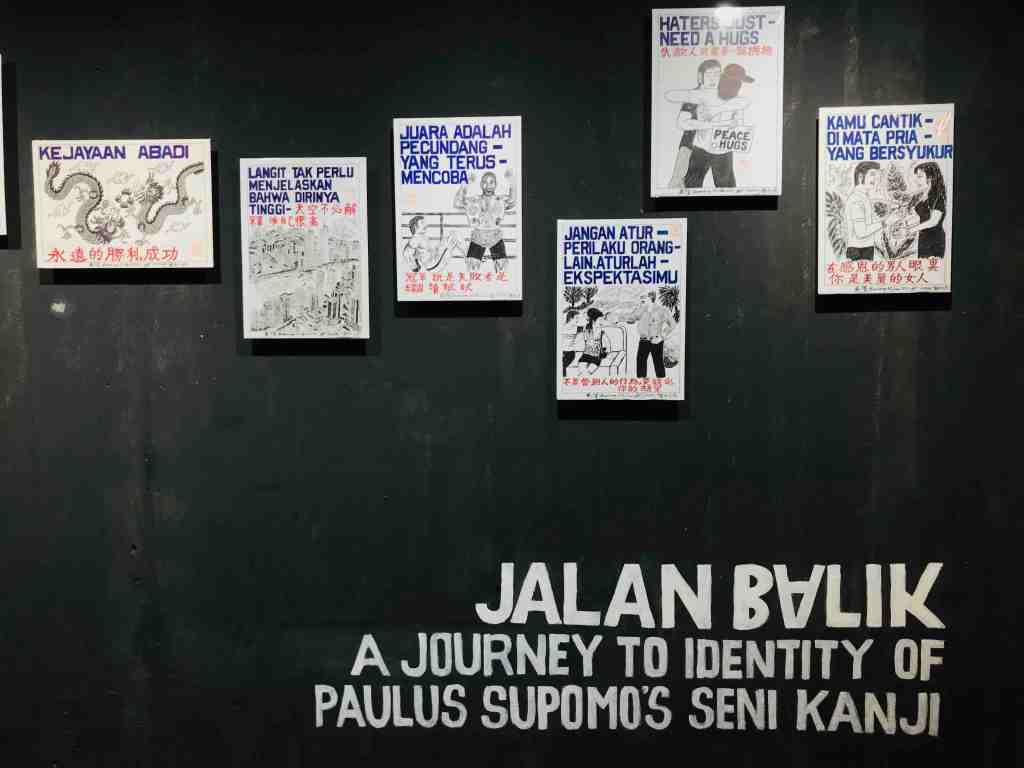 KEJAYAAN ABADI
永遠的勝利,成功
LANGIT TAK PERLU
MENJELASKAN
BAHWA DIRINYA
TINGGI- 天空不必解
釋 自己很高
JUARA ADALAH
PECUNDANG-
YANG TERUS-
MENCOBA
冠軍就是失敗者是
繼續
JANGAN ATUR-
PERILAKU ORANG-
LAIN,ATURLAH-
EKSPEKTASIMU
不要管別人的行為,
你的期望
HATERS JUST-
NEED A HUGS
人就需要一點擁抱
PEACE
HUGS
KAMU CANTIK-
DI MATA PRIA-
YANG BERSYUKUR
在感恩的男人眼裏
你是美麗的女人
JALAN BALIK
A JOURNEY TO IDENTITY OF
PAULUS SUPOMO'S SENI KANJI